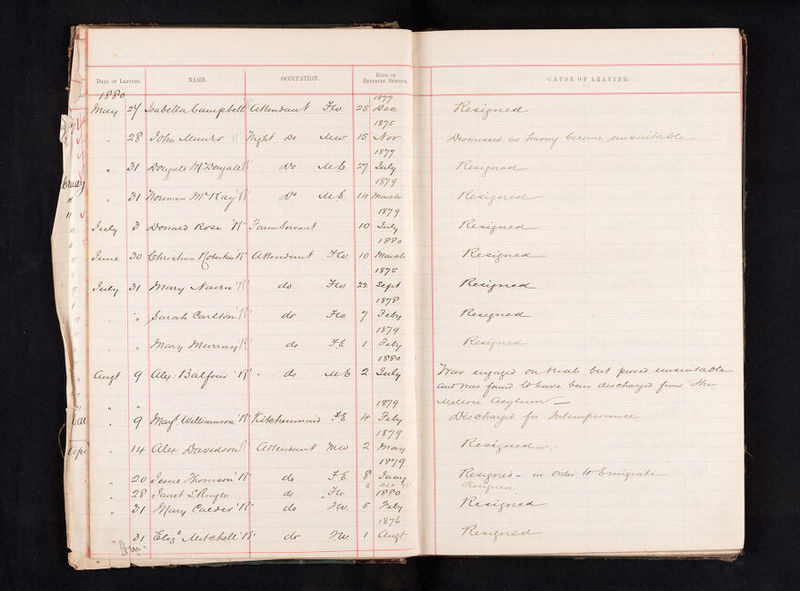 DATE OF LEAVING. NAME. OCCUPATION. DATE OF ENTERING SERVICE. CAUSE OF LEAVING.
1880 1877
May 27 Isabella Campbell Attendant F.W. 25 Dec Resigned
1875
" 28 John Munro R Night do M.W. 15 Nov Dismissed as having become unsuitable
1877
" 31 Dougald McDougald R Do M.E. 27 July Resigned
1879
" 31 Norman McKay R Do M.E. 14 March Resigned
1879
July 3 Donald Rose R Farm Servant 10 July Resigned
1880
June 30 Christian Robertson R Attendant F.W. 10 March Resigned
1875
July 31 Mary Nairn R do F.W. 22 Sept Resigned
1878
" " Sarah Carlton R do F.W. 7 Feby Resigned
1879
" " Mary Murray R do F.E. 1 Feby Resigned
1880
Augt 9 Alex. Balfour R do M.E. 2 July Was engaged on trial but proved unsuitable
and was found to have been discharged from the
Melrose Asylum
1879
" 9 Margt Williamson R Kitchenmaid F.E. 4 Feby Discharged for Intemperance
1879
" 14 Alex. Davidson R Attendant M.W. 2 May Resigned
1879
" 20 Jessie Thomson R do F.E. 8 Jany Resigned - in order to Emigrate
" 28 Janet do F.W. 2 Dec Resigned
1880
" 31 Mary Calder R do F.W. 5 Feby Resigned
1876
" 31 Eliz. Mitchell R do F.W. 1 Augt Resigned